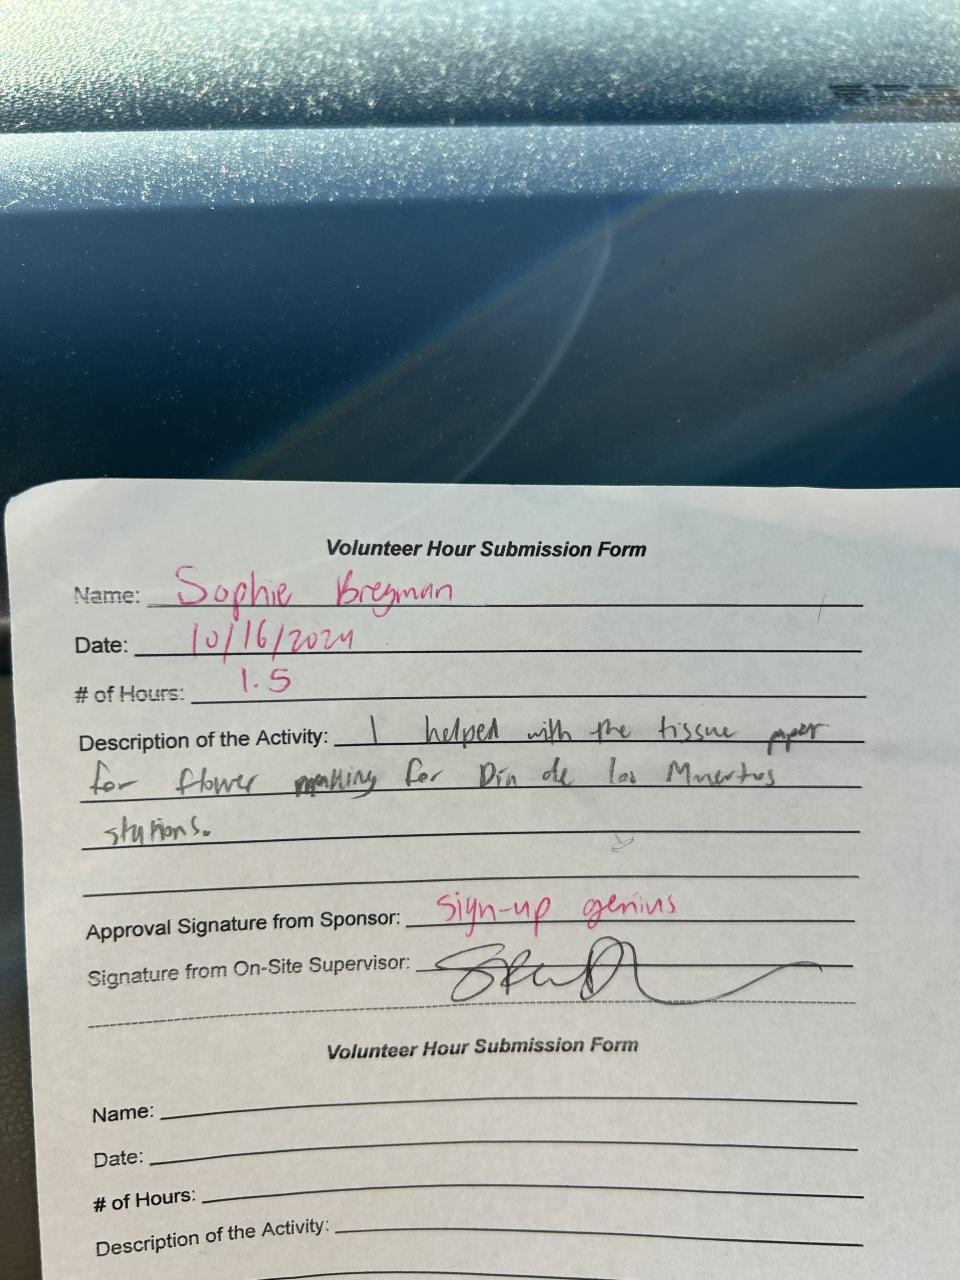 Volunteer Hour Submission Form
Name: Sophie Bregman
Date: 10/16/2024
# of Hours: 1.5
Description of the Activity: I helped with the tissue paper
for flower making for Día de los Muertos
stations.
Approval Signature from Sponsor: Sign-up genius
Signature from On-Site Supervisor:
Volunteer Hour Submission Form
Name:
Date:
# of Hours:
Description of the Activity: